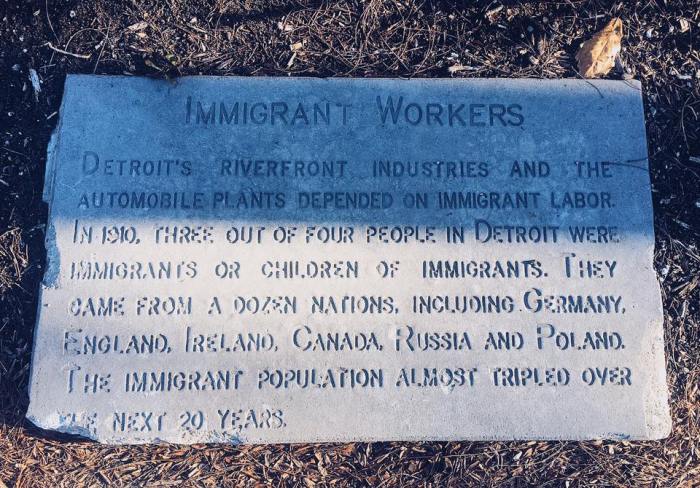 IMMIGRANT WORKERS
DETROIT'S RIVERFRONT INDUSTRIES AND THE
AUTOMOBILE PLANTS DEPENDED ON IMMIGRANT LABOR.
IN 1910, THREE OUT OF FOUR PEOPLE IN DETROIT WERE
IMMIGRANTS OR CHILDREN OF IMMIGRANTS. THEY
CAME FROM A DOZEN NATIONS, INCLUDING GERMANY,
ENGLAND, IRELAND, CANADA, RUSSIA AND POLAND.
THE IMMIGRANT POPULATION ALMOST TRIPLED OVER
THE NEXT 20 YEARS.